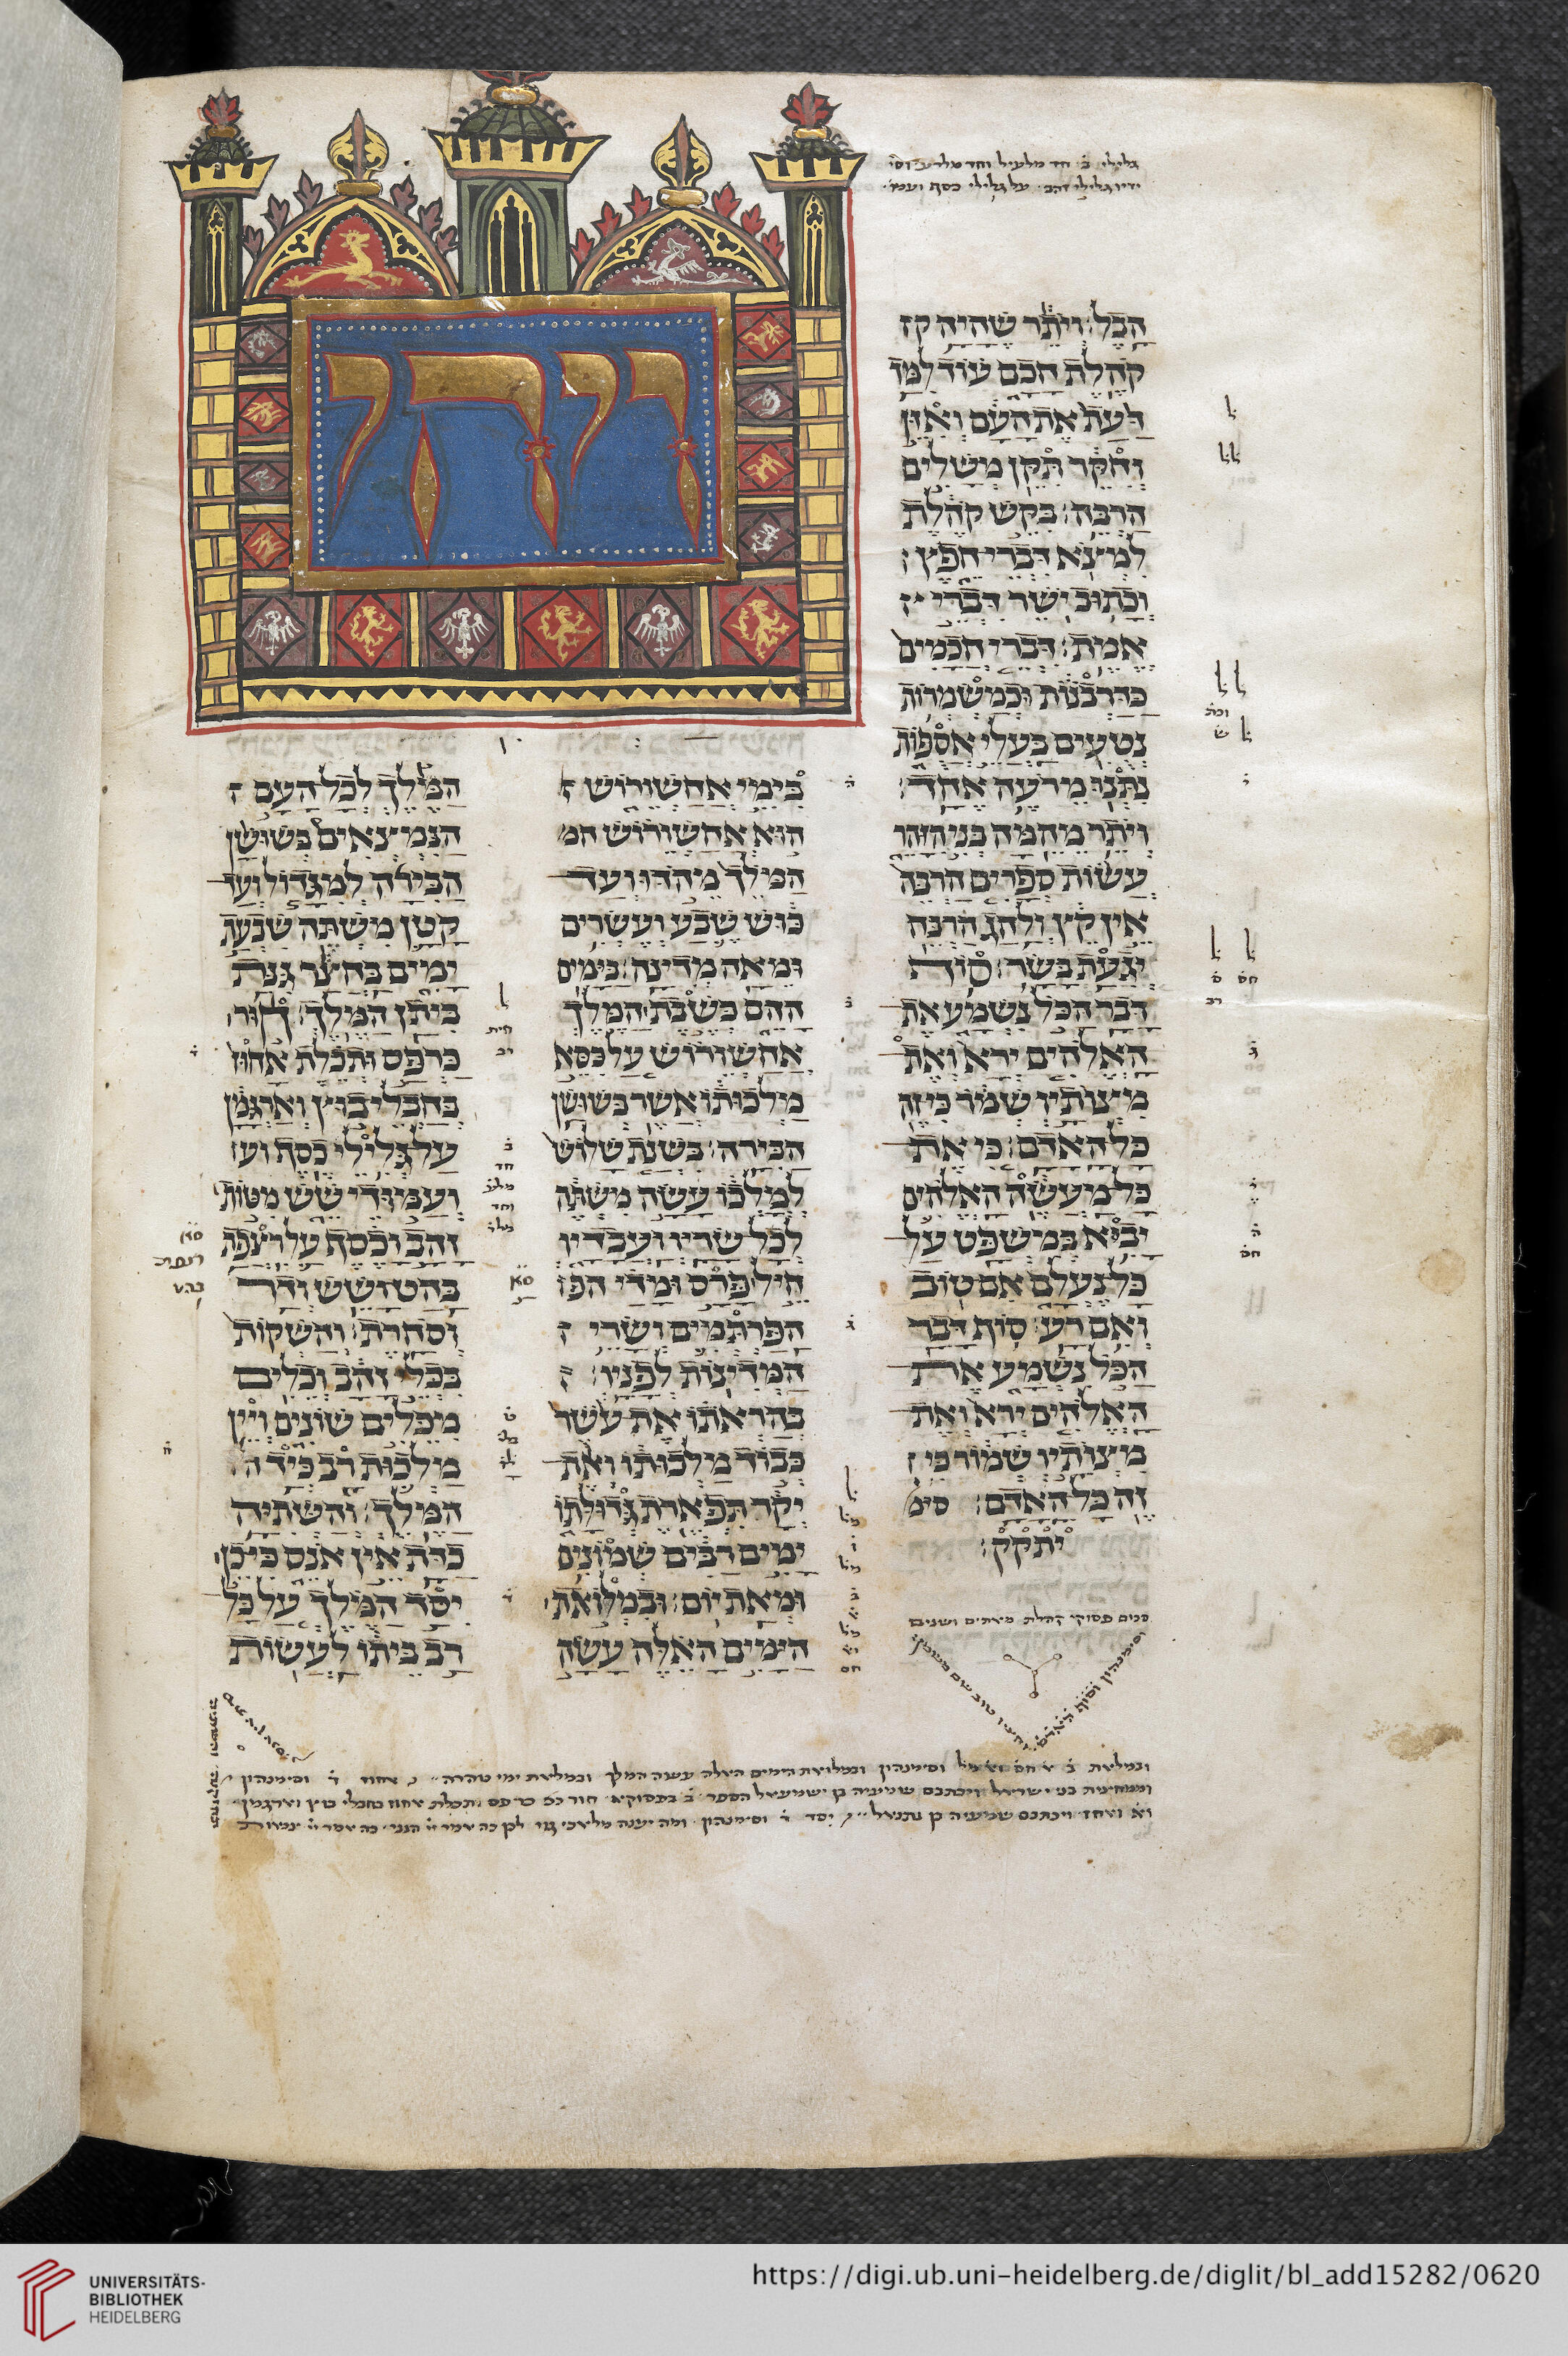 הכל׃ ויתר שהיה ק
קהלת חכם עוד למד
דעת את העם ואזן
וחקר תקן משלים
הרבה׃ בקש קהלת
למצא דברי חפץ׃
וכתוב ישר דברי
אמת׃ דברי חכמים
כדרבנות וכמשמרות
נטעים בעלי אספות
נתנו מרעה אחד׃
ויתר מהמה בני הזהר
עשות ספרים הרבה
אין קץ ולהג הרבה
יגעת בשר׃ סוף
דבר הכל נשמע את
האלהים ירא ואת
מצותיו שמור כי זה
כל האדם׃ כי את
כל מעשה האלהים
יבוא במשפט על
כל נעלם אם טוב
ואם רע׃ סוף דבר
הכל נשמע את
האלהים ירא ואת
מצותיו שמור כי
זה כל האדם׃ סימ
יתקק׃
סכום פסוקי קהלת מאתים ושנים
ויהי
בימי אחשורוש
הוא אחשורוש המ
המלך מהדו ועד
כוש שבע ועשרים
ומאה מדינה׃ בימים
ההם כשבת המלך
אחשורוש על כסא
מלכותו אשר בשושן
הבירה׃ בשנת שלוש
למלכו עשה משתה
לכל שריו ועבדיו
חיל פרס ומדי הפ
הפרתמים ושרי
המדינות לפניו׃
בהראתו את עשר
כבוד מלכותו ואת
יקר תפארת גדולתו
ימים רבים שמונים
ומאת יום׃ ובמלואת
הימים האלה עשה
המלך לכל העם
הנמצאים בשושן
הבירה למגדול ועד
קטן משתה שבעת
ימים בחצר גנת
ביתן המלך׃ חור
כרפס ותכלת אחוז
בחבלי בוץ וארגמן
על גלילי כסף וע
ועמודי שש מטות
זהב וכסף על רצפת
בהט ושש ודר
וסחרת׃ והשקות
בכלי זהב וכלים
מכלים שונים ויין
מלכות רב כיד
המלך׃ והשתיה
כדת אין אנס כי כן
יסד המלך על כל
רב ביתו לעשות
UNIVERSITÄTS-
BIBLIOTHEK
HEIDELBERG
https://digi.ub.uni-heidelberg.de/diglit/bl_add15282/0620